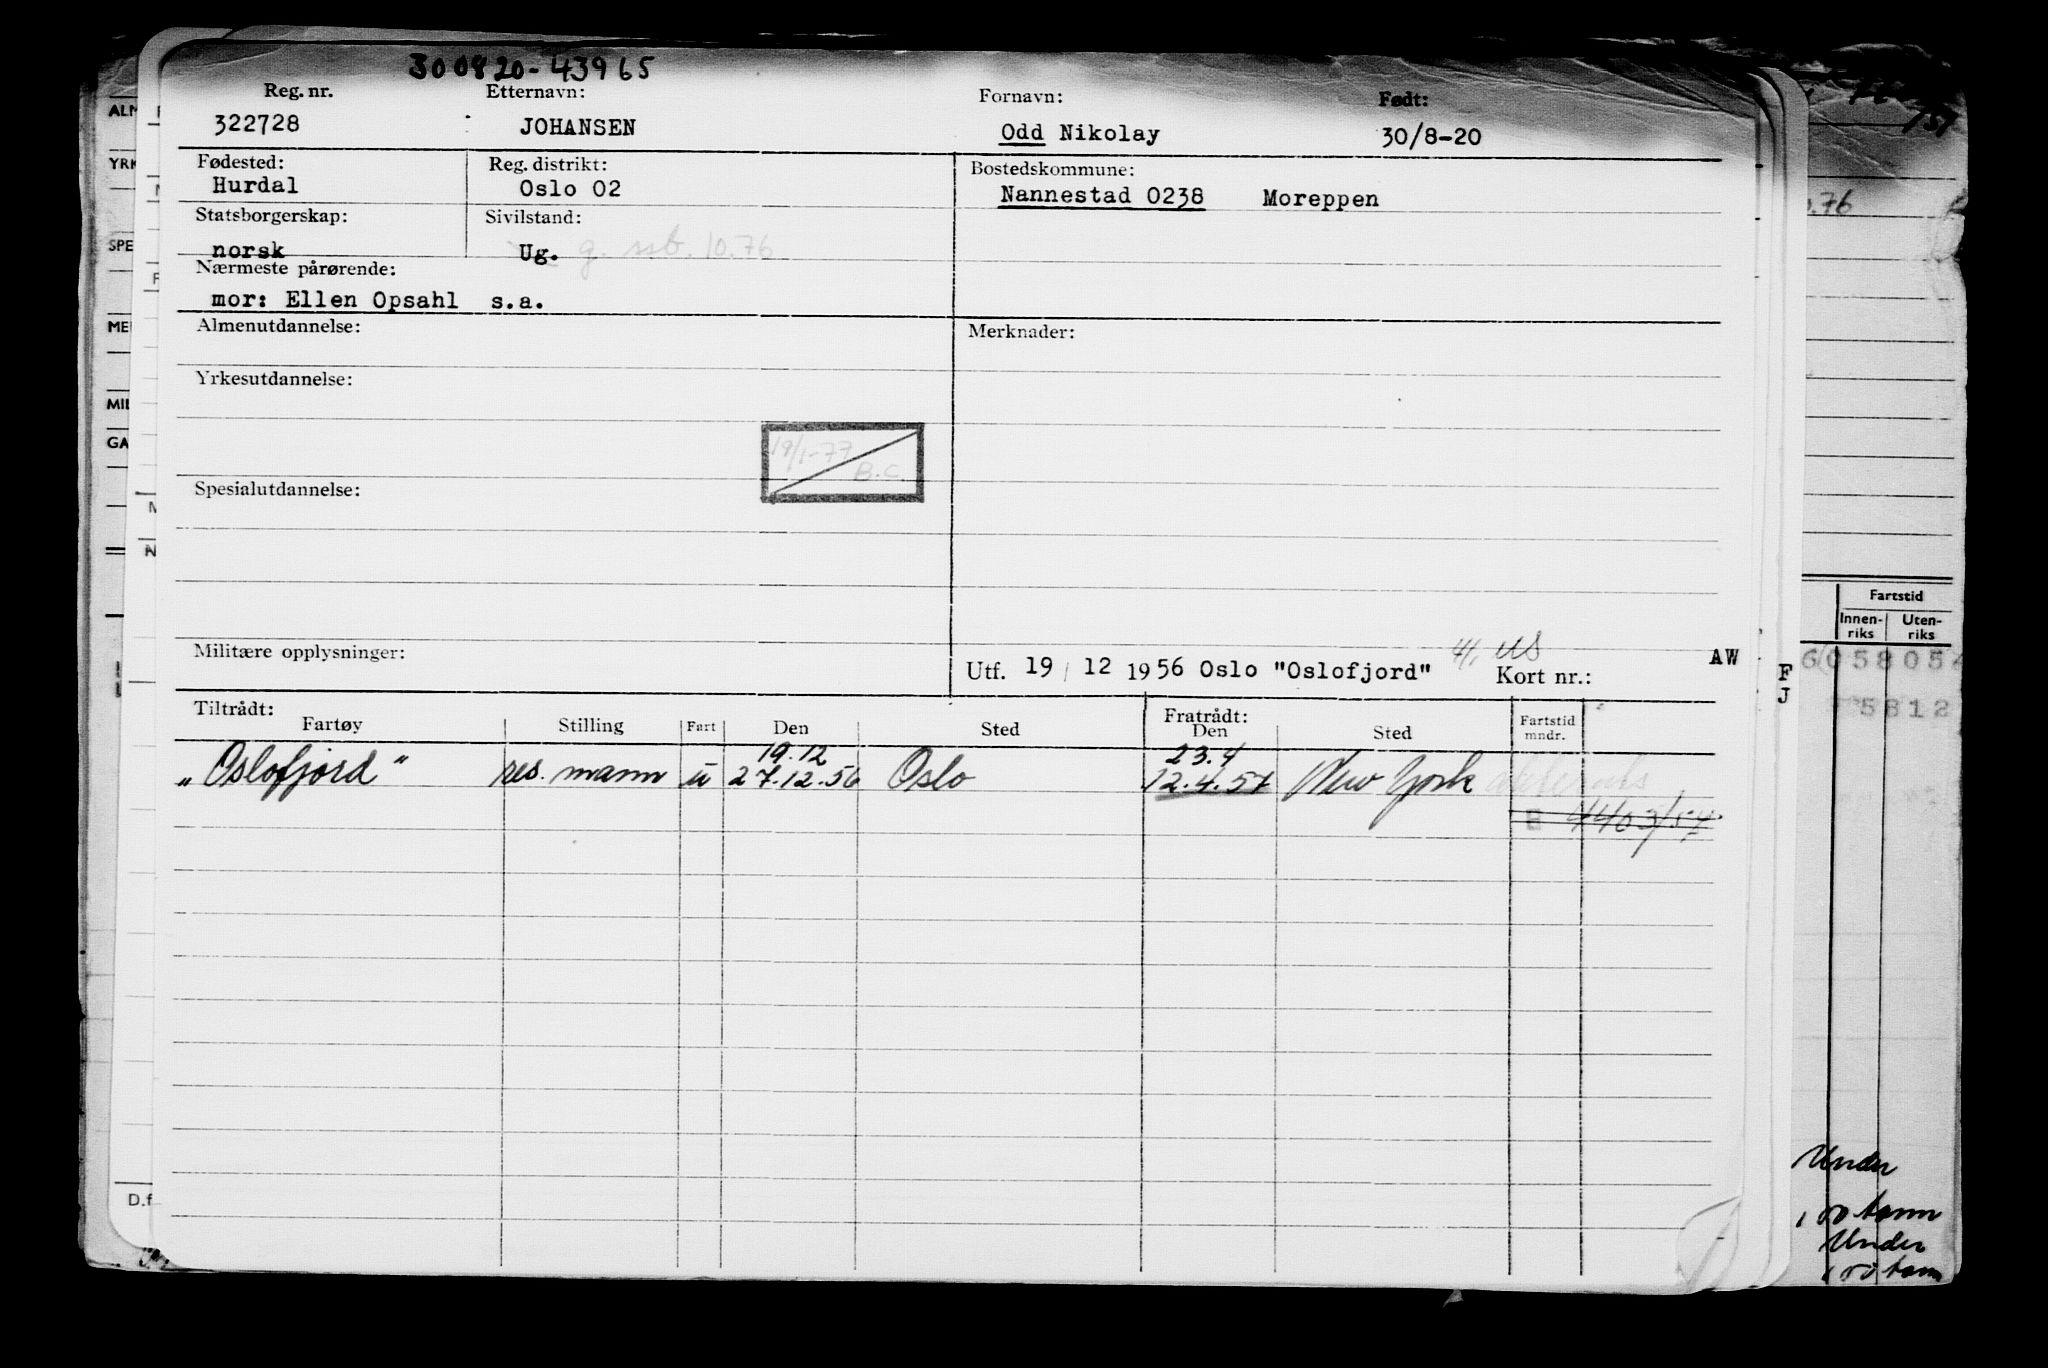 300820-43965
Reg. nr. Etternavn: Fornavn: Født:
322728 JOHANSEN Odd Nikolay 30/8-20
Fødested: Reg. distrikt: Bostedskommune:
Hurdal Oslo 02 Nannestad 0238 Moreppen
Statsborgerskap: Sivilstand:
norsk Ug. g. 10.76
Nærmeste pårørende:
mor: Ellen Opsahl s.a.
Almenutdannelse: Merknader:
Yrkesutdannelse:
19/1-77
B.C.
Spesialutdannelse:
Militære opplysninger:
Utf. 19 / 12 1956 Oslo "Oslofjord" Kort nr.: AW
Tiltrådt: Fratrådt:
Fartøy Stilling Fart Den Sted Den Sted Fartstid mndr.
19.12 23.4
"Oslofjord" res. mann u 27.12.56 Oslo 12.4.57 New York
4403/57
ALM
YRK
SPE
MEI
MIL
GA
N
D.f
F
J
157
.76
Fartstid
Innen-riks Uten-riks
58054
5812
Under
100 tonn
Under
100 tonn